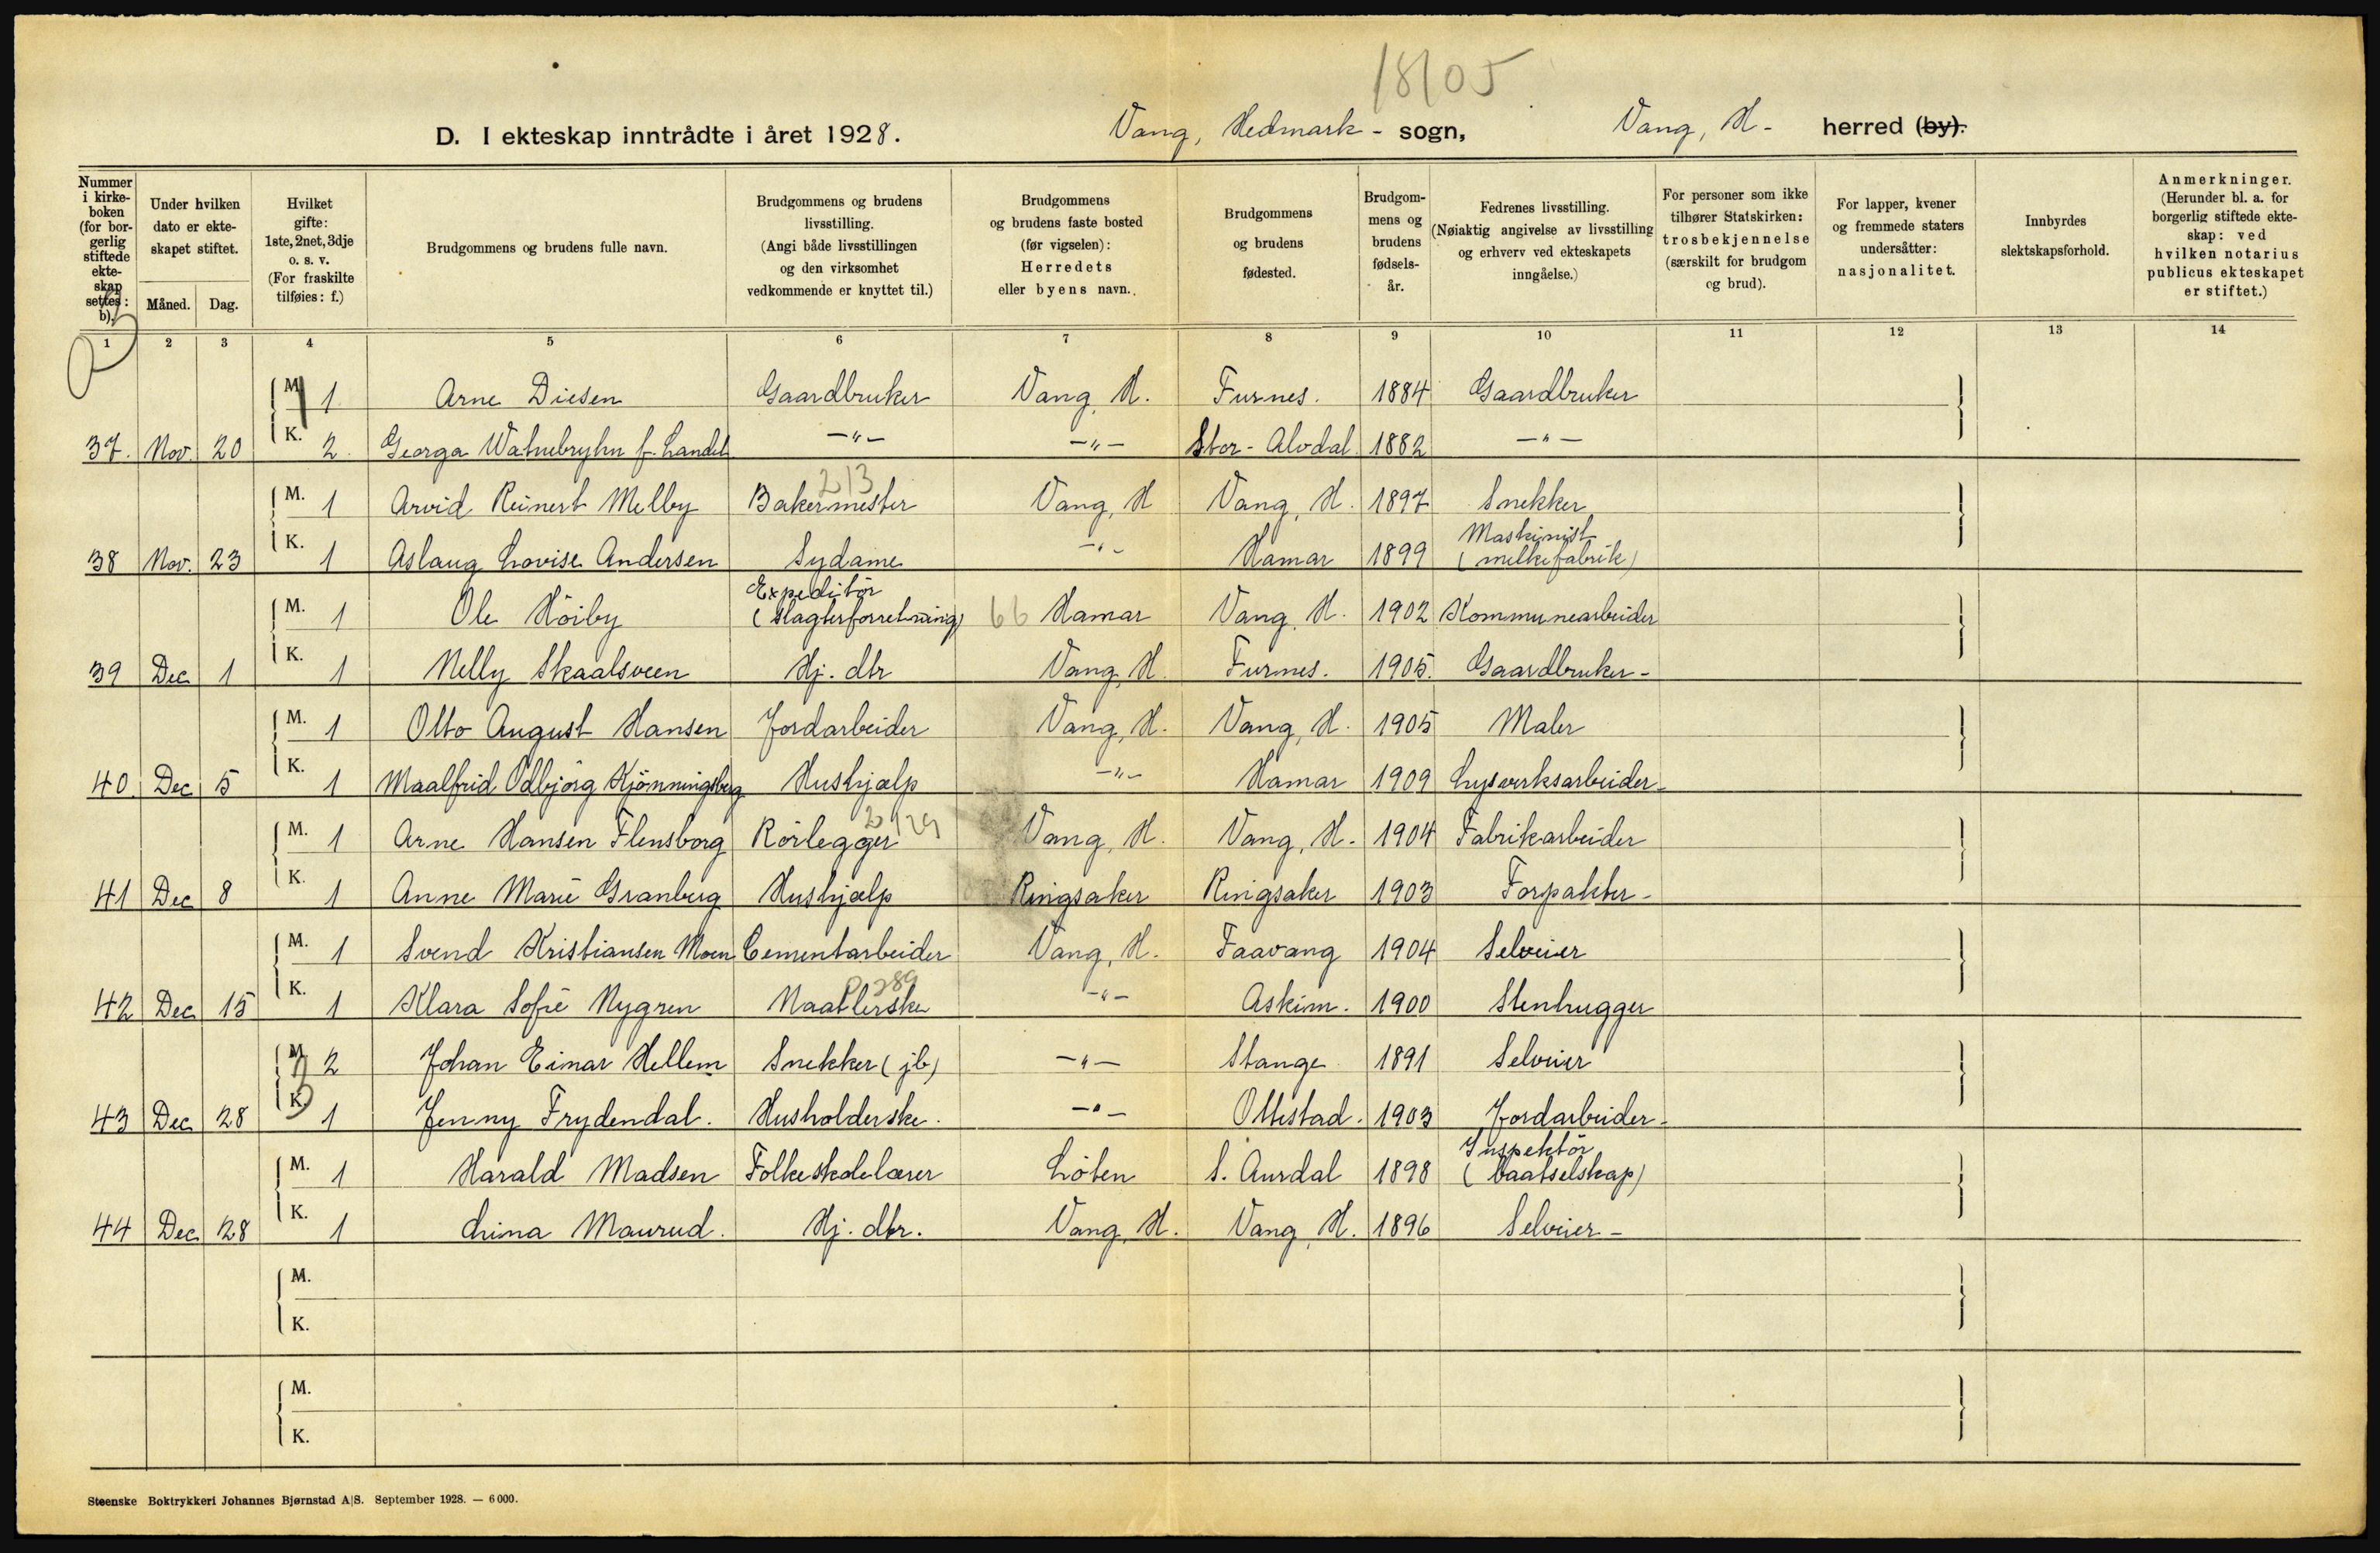 18/05
D. I ekteskap inntrådte i året 1928. Vang, Hedmark - sogn, Vang, H- herred (by).
Nummer i kirke-boken (for bor-gerlig stiftede ekte-skap settes: b).
Under hvilken dato er ekte-skapet stiftet.
Måned. Dag.
Hvilket gifte: 1ste, 2net, 3dje o. s. v. (For fraskilte tilføies: f.)
Brudgommens og brudens fulle navn.
Brudgommens og brudens livsstilling. (Angi både livsstillingen og den virksomhet vedkommende er knyttet til.)
Brudgommens og brudens faste bosted (før vigselen): Herredets eller byens navn.
Brudgommens og brudens fødested.
Brudgom-mens og brudens fødsels-år.
Fedrenes livsstilling. (Nøiaktig angivelse av livsstilling og erhverv ved ekteskapets inngåelse.)
For personer som ikke tilhører Statskirken: trosbekjennelse (særskilt for brudgom og brud).
For lapper, kvener og fremmede staters undersåtter: nasjonalitet.
Innbyrdes slektskapsforhold.
Anmerkninger. (Herunder bl. a. for borgerlig stiftede ekte-skap: ved hvilken notarius publicus ekteskapet er stiftet.)
1 2 3 4 5 6 7 8 9 10 11 12 13 14
M. 1 Arne Diesen Gaardbruker Vang, H. Furnes. 1884 Gaardbruker
37. Nov. 20 K. 2. Georga Watnebryhn f. Landet -"- -"- Stor-Alvdal 1882 -"-
213
M. 1 Arvid Reinert Melby Bakermester Vang, H Vang, H. 1897 Snekker
Maskinist
38 Nov. 23 K. 1 Aslaug Lovise Andersen Sydame -"- Hamar 1899 (melkefabrik)
Expeditör
M. 1 Ole Höiby (Slagterforretning) 66 Hamar Vang, H. 1902 Kommunearbeider
39 Dec 1 K. 1 Nelly Skaalsveen Hj. dtr Vang, H. Furnes. 1905. Gaardbruker-
M. 1 Otto August Hansen Jordarbeider Vang, H. Vang, H. 1905 Maler
40. Dec 5 K. 1 Maalfrid Odbjörg Kjönningsberg Hushjælp -"- Hamar 1909 Lysverksarbeider-
M. 1 Arne Hansen Flensborg Rörlegger Vang, H. Vang, H. 1904 Fabrikarbeider
41 Dec 8 K. 1 Anne Marie Granberg Hushjælp Ringsaker Ringsaker 1903 Forpakter-
M. 1 Svend Kristiansen Moen Cementarbeider Vang, H. Faavang 1904 Selveier
289
42 Dec 15 K. 1 Klara Sofie Nygren -"- Askim. 1900 Stenhugger
M. 2 Johan Eimar Hellem Snekker (jb) -"- Stange 1891 Selveier
43 Dec 28 K. 1 Jenny Frydendal. Husholderske. -"- Ottestad. 1903 Jordarbeider-
Inspektör
M. 1 Harald Madsen Folkeskolelærer Löten S. Aurdal 1898 (baatselskap)
44 Dec 28 K. 1 Linna Maurud. Hj. dtr. Vang, H. Vang, H. 1896 Selveier-
M.
K.
M.
K.
Steenske Boktrykkeri Johannes Bjørnstad A|S. September 1928. — 6000.